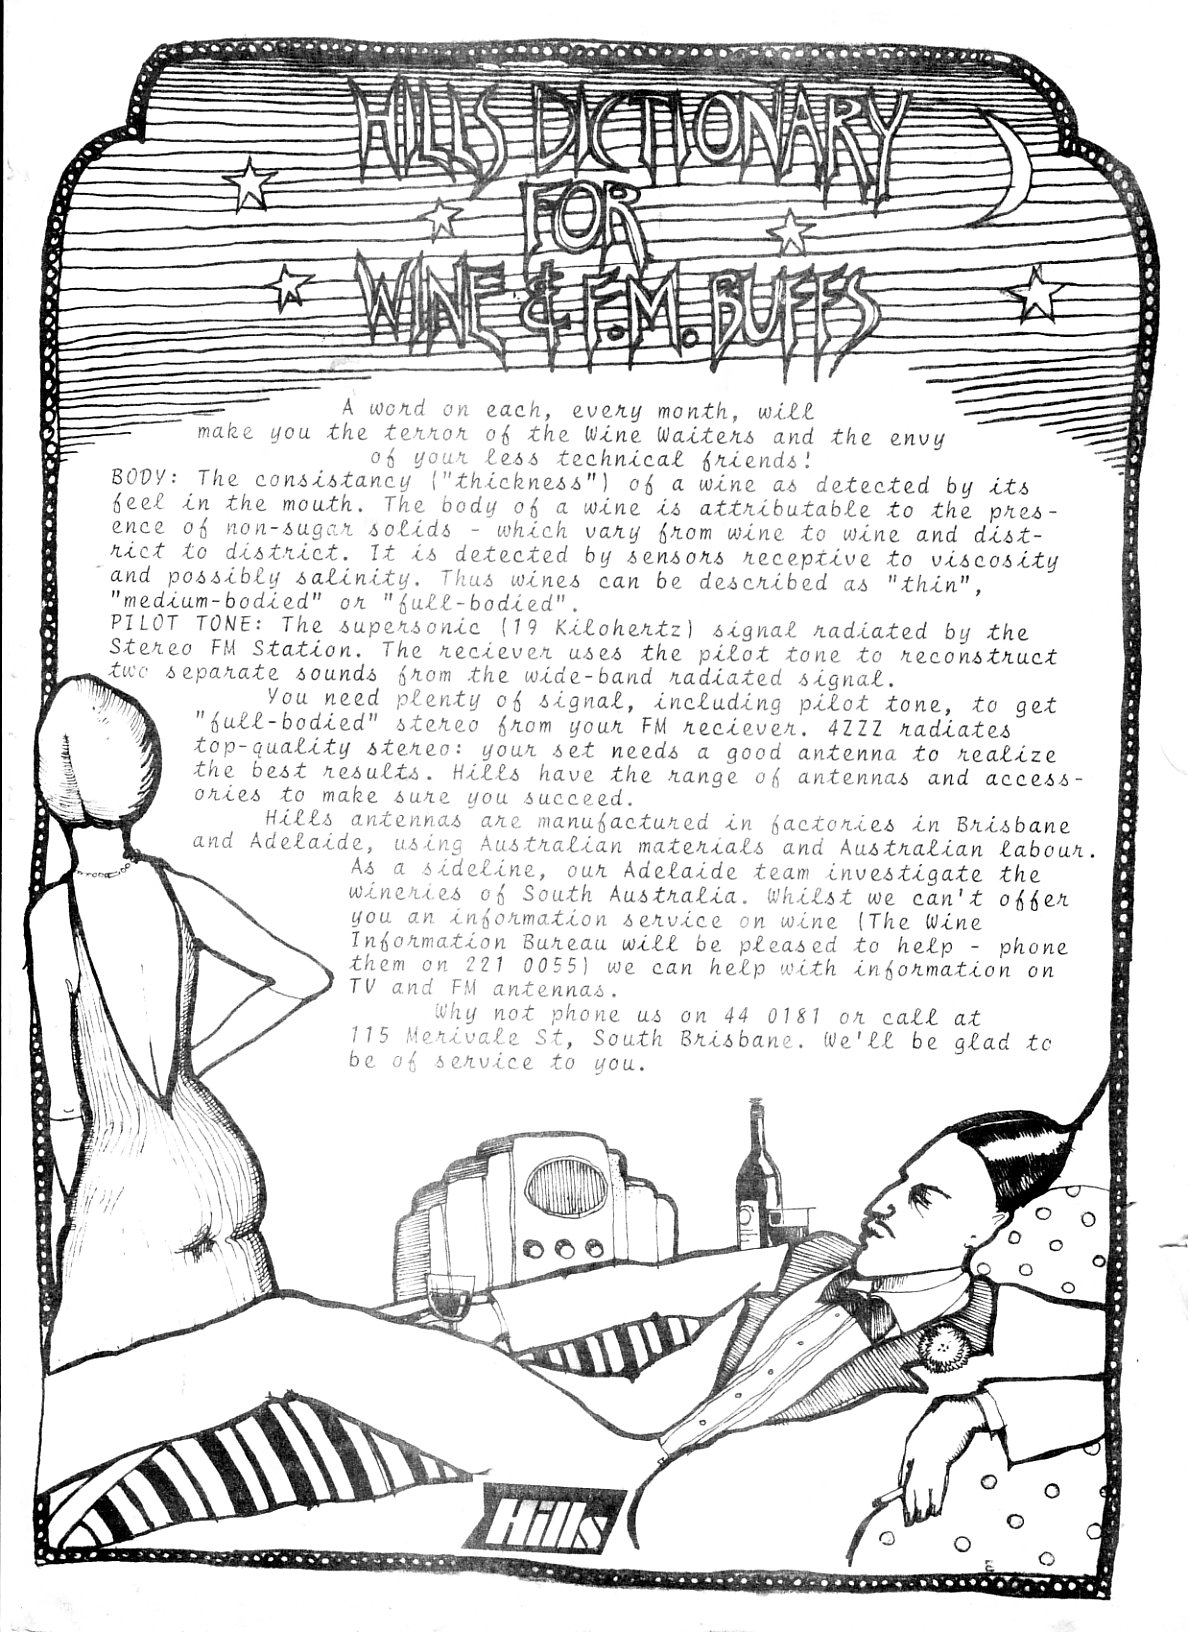 HILLS DICTIONARY
FOR
WINE & F.M. BUFFS
A word on each, every month, will
make you the terror of the Wine Waiters and the envy
of your less technical friends!
BODY: The consistancy ("thickness") of a wine as detected by its
feel in the mouth. The body of a wine is attributable to the pres-
ence of non-sugar solids - which vary from wine to wine and dist-
rict to district. It is detected by sensors receptive to viscosity
and possibly salinity. Thus wines can be described as "thin",
"medium-bodied" or "full-bodied".
PILOT TONE: The supersonic (19 Kilohertz) signal radiated by the
Stereo FM Station. The reciever uses the pilot tone to reconstruct
two separate sounds from the wide-band radiated signal.
You need plenty of signal, including pilot tone, to get
"full-bodied" stereo from your FM reciever. 4ZZZ radiates
top-quality stereo: your set needs a good antenna to realize
the best results. Hills have the range of antennas and access-
ories to make sure you succeed.
Hills antennas are manufactured in factories in Brisbane
and Adelaide, using Australian materials and Australian labour.
As a sideline, our Adelaide team investigate the
wineries of South Australia. Whilst we can't offer
you an information service on wine (The Wine
Information Bureau will be pleased to help - phone
them on 221 0055) we can help with information on
TV and FM antennas.
Why not phone us on 44 0181 or call at
115 Merivale St, South Brisbane. We'll be glad to
be of service to you.
Hills